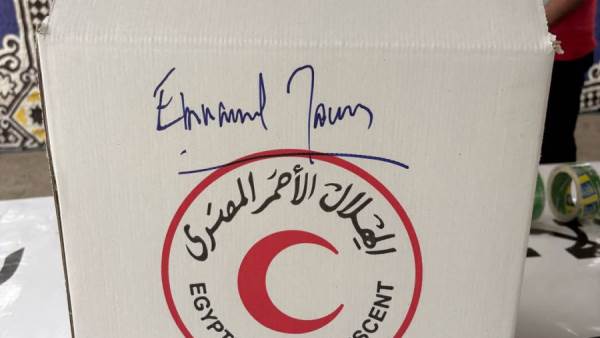 Emmanuel Macron
الهلال الأحمر المصرى
EGYPT
SCENT